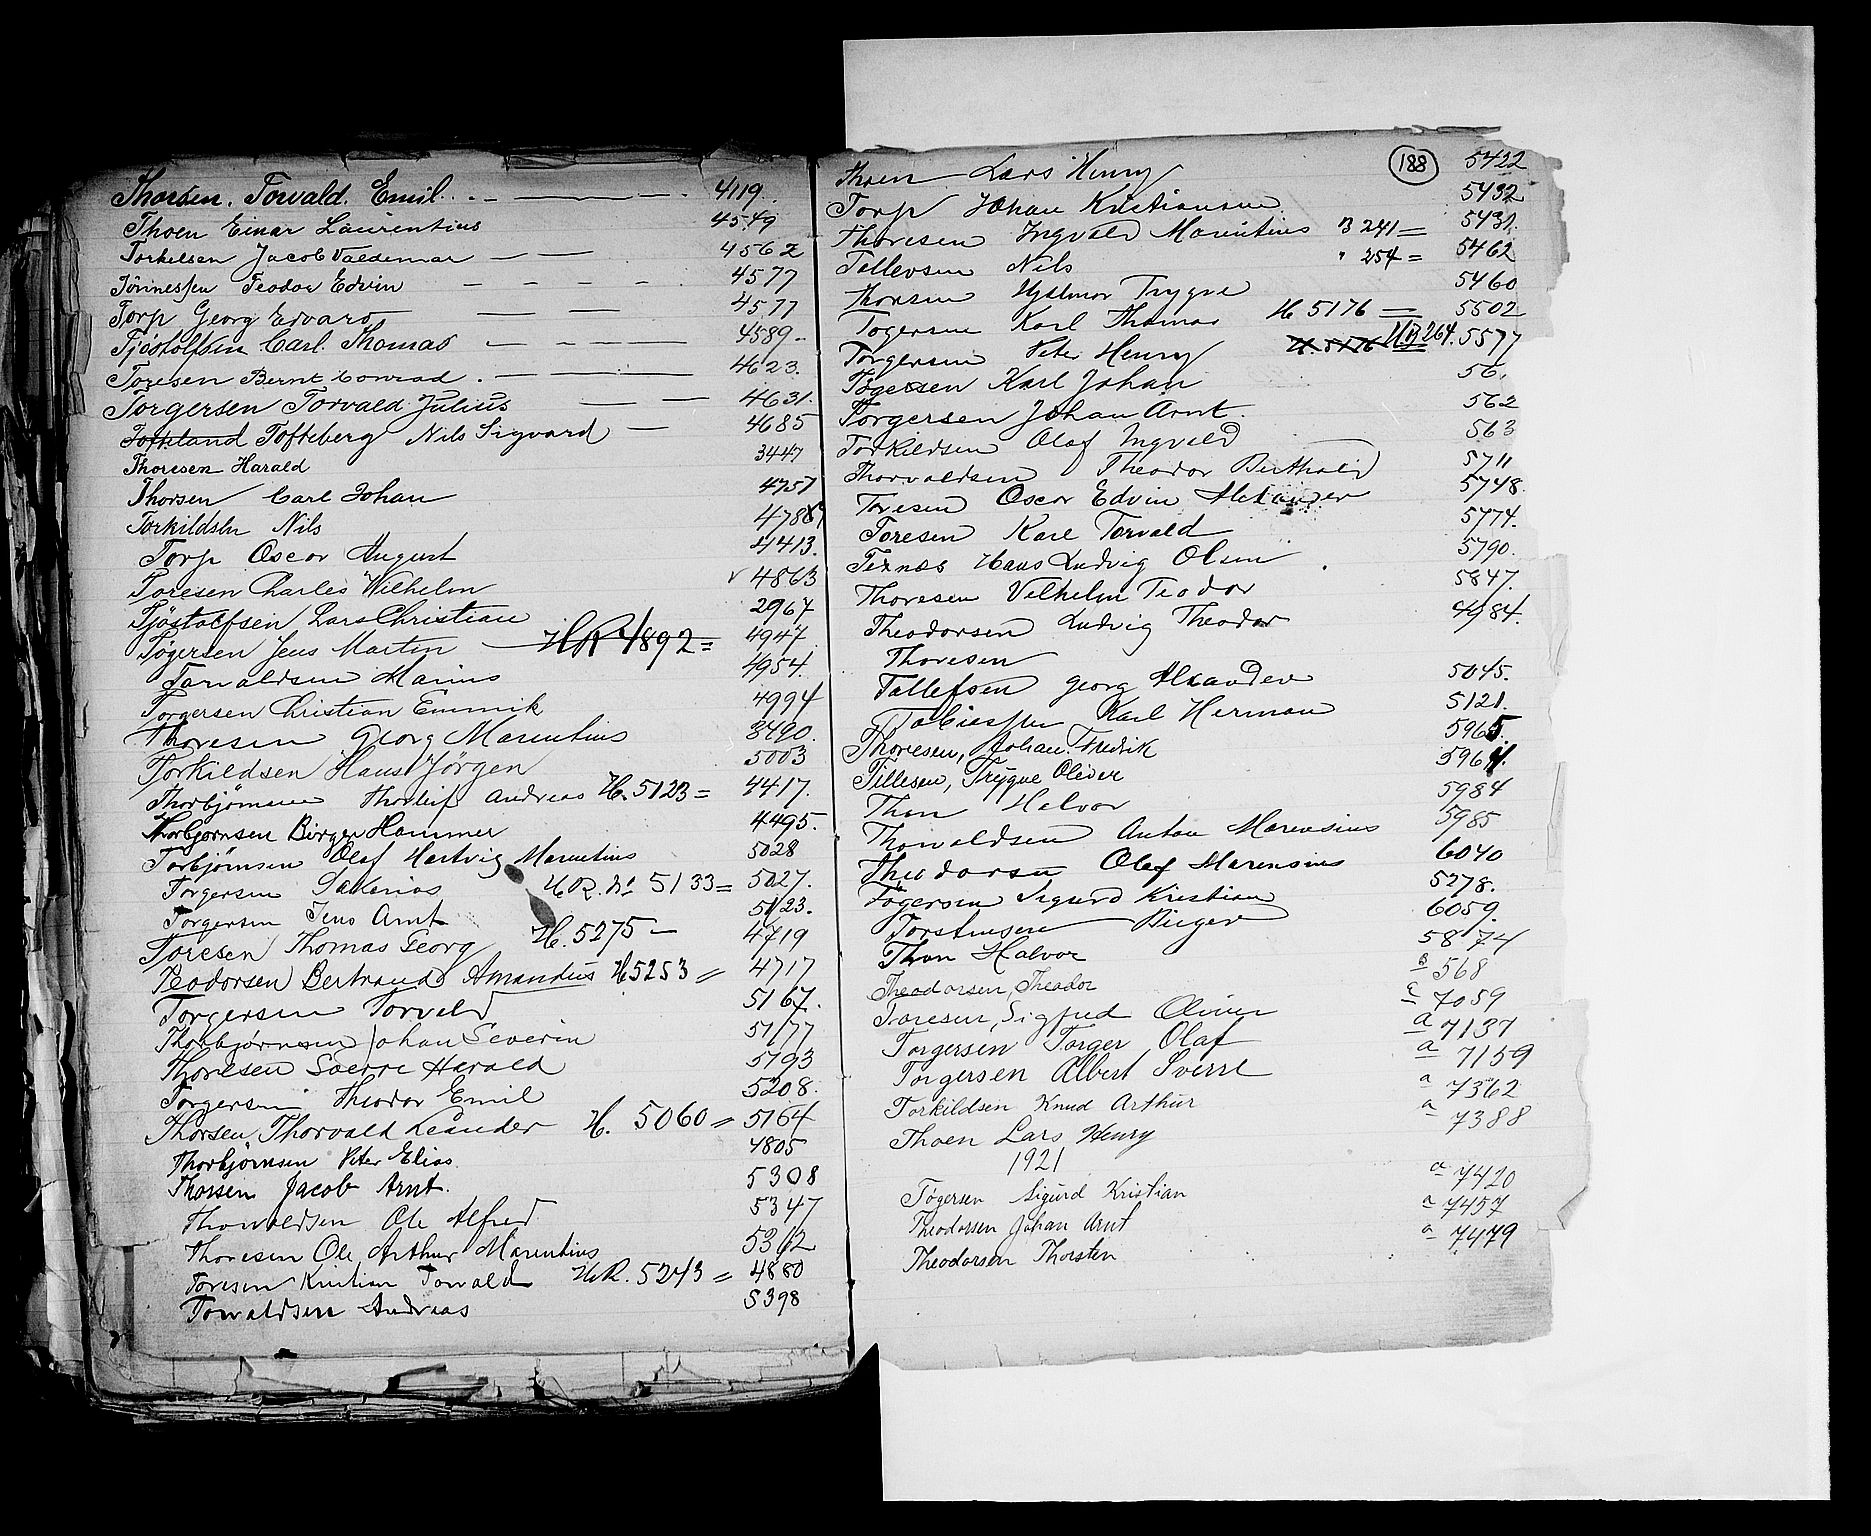 Thorsen. Torvald. Emil. 4119.
Thoen Einar Laurentius 4549
Torkelsen Jacob Valdemar 4562
Tönnessen Teodor Edvin 4577
Torp Georg Edvard 4577
Tjöstolfsen Carl. Thomas 4589
Toresen Bernt Conrad. 4623.
Torgersen Torvald Julius 4631
Tofteland Tofteberg Nils Sigvard 4685
Thoresen Harald 3447
Thorsen Carl Johan 4757
Torkildsen Nils
Torp Oscar August 4413.
Toresen Charles Wilhelm 4863
Tjöstolfsen Lars Christian 2967
Tögersen Jens Martin HR 4892 = 4947
Torvaldsen Marius 4954.
Torgersen Christian Emmik 4994
Thoresen Georg Marentius 3490.
Torkildsen Hans Jörgen 5003
Thorbjörnsen Thorleif Andreas H. 5123 = 4417.
Thorbjornsen Birger Hammer 4495.
Torbjörnsen Olaf Hartvig Marentius 5028
Torgersen Sakarias HR. No 5133 = 5027.
Torgersen Jens Arnt 5123.
Toresen Thomas Georg H. 5275 4719
Teodorsen Bertrand Amandus H 5253 = 4717
Torgersen Torvald 5167.
Thorbjørnsen Johan Severin 5177
Thoresen Sverre Harald 5193
Torgersen Theodor Emil 5208.
Thorsen, Thorvald Leander H. 5060 = 5164
Thorbjörnsen Peter Elias. 4805
Thorsen Jacob Arnt. 5308
Thorvaldsen Ole Alfred 5347
Thoresen Ole Arthur Marentius 5362
Toresen Kristian Torvald HR. 5243 = 4880
Torvaldsen Andreas 5398
188
Thoen Lars Henry 5422
Torp Johan Kristiansen 5432
Thoresen Ingvald Marentius B 241 = 5431.
Tellevsen Nils " 254 = 5462
Thorsen Hjalmar Trygve 5460
Togersen Karl Thomas H 5176 = 5502
Torgersen Peter Henry H. 5176 264. 5577
Tögersen Karl Johan 56.
Torgersen Johan Arnt. 562
Torkildsen Olaf Ingvald 563
Thorvaldsen Theodor Berthold 5711
Toresen Oscar Edvin Alexander 5748.
Toresen Karl Torvald 5774.
Ternæs Hans Ludvig Olsen 5790.
Thoresen Vilhelm Teodor 5847.
Theodorsen Ludvig Theodor 4984.
Thoresen
Tallefsen Georg Alexander 5045.
Tobiassen Karl Herman 5121.
Thoresen, Johan Fredrik 5965.
Tillesen, Trygve Oliver 5964.
Thon Halvor 5984
Thorvaldsen Anton Marensius 5985
Theodorsen Olaf Marensius 6040
Togersen Sigurd Kristian 5278.
Torstensen Birger 6059.
Thon Halvor 5874
Theodorsen, Theodor B 568
Toresen, Sigfred Oliver a 7059
Torgersen Torger Olaf a 7137
Torgersen Albert Sverre a 7159
Torkildsen Knud Arthur a 7362
Thoen Lars Henry a 7388
1921
Tögersen Sigurd Kristian a 7420
Theodorsen Johan Arnt a 7457
Theodorsen Thorsten a 7479